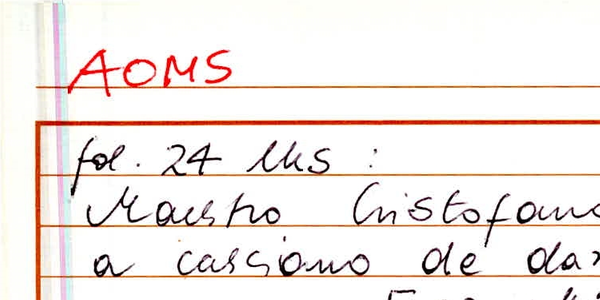 AOMS
fol. 24 MS :
Maestro Cristofano
a casciono de dar